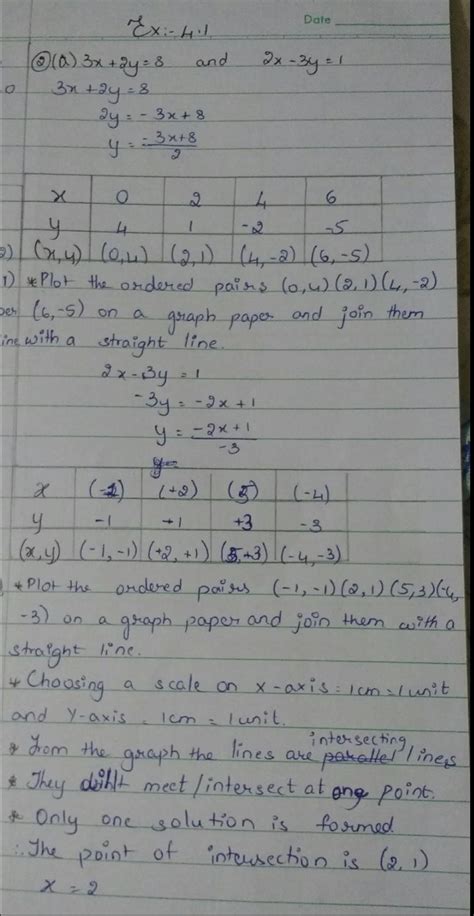 Date
Ex:- 4.1
② (a) 3x+2y=8 and 2x-3y=1
3x+2y=8
2y = -3x+8
y = -3x+8/2
x 0 2 4 6
y 4 1 -2 -5
(x,y) (0,4) (2,1) (4,-2) (6,-5)
*Plot the ordered pairs (0,4) (2,1) (4,-2)
(6,-5) on a graph paper and join them
with a straight line.
2x-3y=1
-3y = -2x+1
y = -2x+1/-3
y=
x (+2) (5) (-4)
y -1 +1 +3 -3
(x,y) (-1,-1) (+2,+1) (5,+3) (-4,-3)
*Plot the ordered pairs (-1,-1) (2,1) (5,3) (-4,
-3) on a graph paper and join them with a
straight line.
* Choosing a scale on x-axis = 1cm = 1 unit
and Y-axis = 1cm = 1 unit.
* From the graph the lines are parallel intersecting lines
* They meet/intersect at one point.
* Only one solution is formed
∴ The point of intersection is (2,1)
x = 2